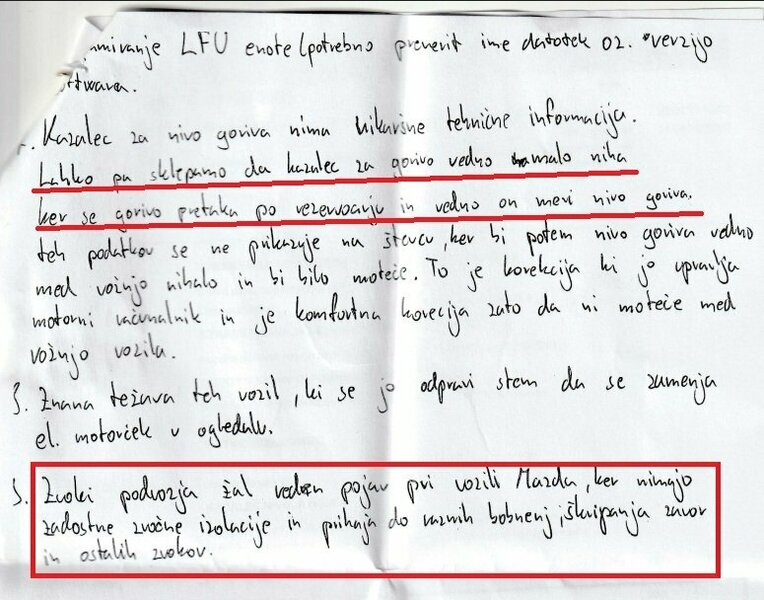 LFU enote (potrebno preverit ime datotek 02. verzijo
Kazalec za nivo goriva nima nikakršne tehnične informacija.
Lahko pa sklepamo da kazalec za gorivo vedno malo niha
ker se gorivo pretaka po rezervoarju in vedno on meri nivo goriva.
teh podatkov se ne prikazuje na števcu, ker bi potem nivo goriva vedno
med vožnjo nihalo in bi bilo moteče. To je korekcija ki jo upravlja
motorni računalnik in je komfortna korecija zato da ni moteče med
vožnjo vozila.
Znana težava teh vozil, ki se jo odpravi stem da se zamenja
el. motorček v ogledalu.
5. Zvoki podvozja žal vedno pojav pri vozili Mazda, ker nimajo
zadostne zvočne izolacije in prihaja do raznih bobnenj, škripanja zavor
in ostalih zvokov.